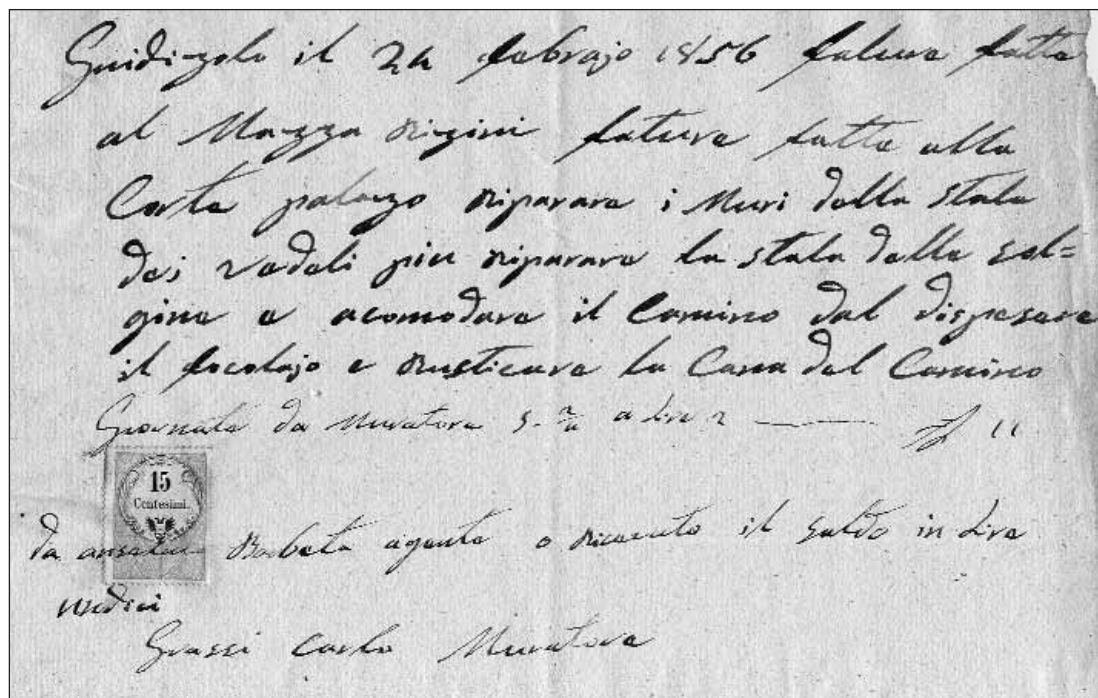 Guidizolo il 24 febrajo 1856 fature fatte
al Mazza Rizini fature fatte alla
Corte palazo Riparare i Muri della Stala
dei vedeli piu Riparare la stala delle sol=
gine e acomodare il Camino dal dispesare
il focolajo e Rusticare la Cana del Camino
Giornate da Muratore 5. 2/4 a Lire 2 — 11
15
Centesimi.
da Barbeta agente o Ricevuto il Saldo in Lire
undici
Grassi Carlo Muratore